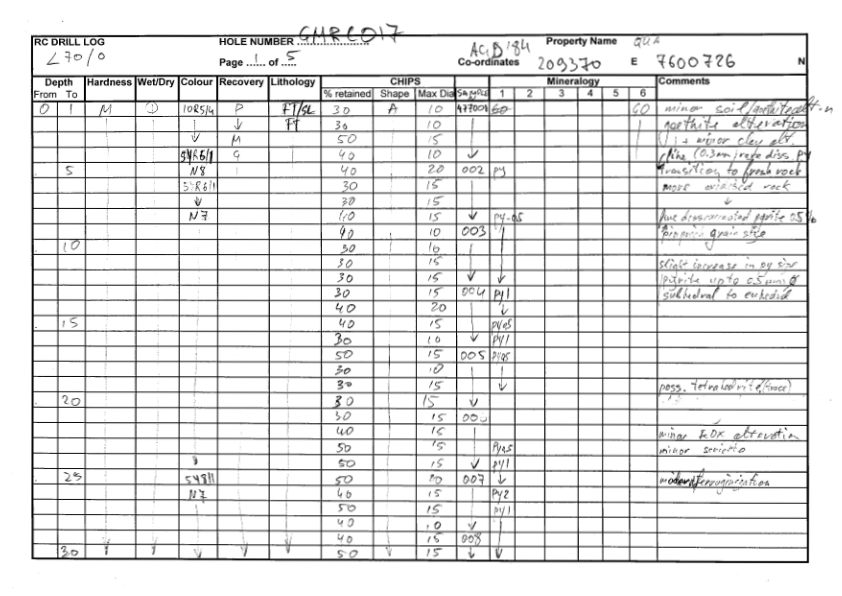 RC DRILL LOG HOLE NUMBER GMRC017
L 70/0 Page 1 of 5 AGD '84 Co-ordinates 209370 E 7600726 N
Property Name QUA
Depth Hardness Wet/Dry Colour Recovery Lithology CHIPS Mineralogy Comments
From To % retained Shape Max Dia SAMPLE 1 2 3 4 5 6
0 1 M 10R5/4 P FT/SL 30 A 10 477001 60 minor soil/goethite
FT 30 10 goethite alteration
M 50 15 minor clay alt.
5YR6/1 G 40 10 (0.3mm) rare diss py
5 N8 40 20 002 py transition to fresh rock
5YR6/1 30 15 more oxidised rock
30 15
N7 40 15 py-05 fine disseminated pyrite 0.5%
40 10 003 grain size
10 30 10
30 15 slight increase in py size
30 15 pyrite up to 0.5mm Ø
30 15 004 py1 subhedral to euhedral
40 20
15 40 15 py05
30 10 py1
50 15 005 py05
30 10
30 15 poss. tetrahedrite (trace)
20 30 15
30 15 006
40 15 minor FeOx alteration
50 15 py05 minor sericite
50 15 py1
25 5Y8/1 50 20 007
N7 40 15 py2
50 15 py1
40 10
40 15 008
30 50 15